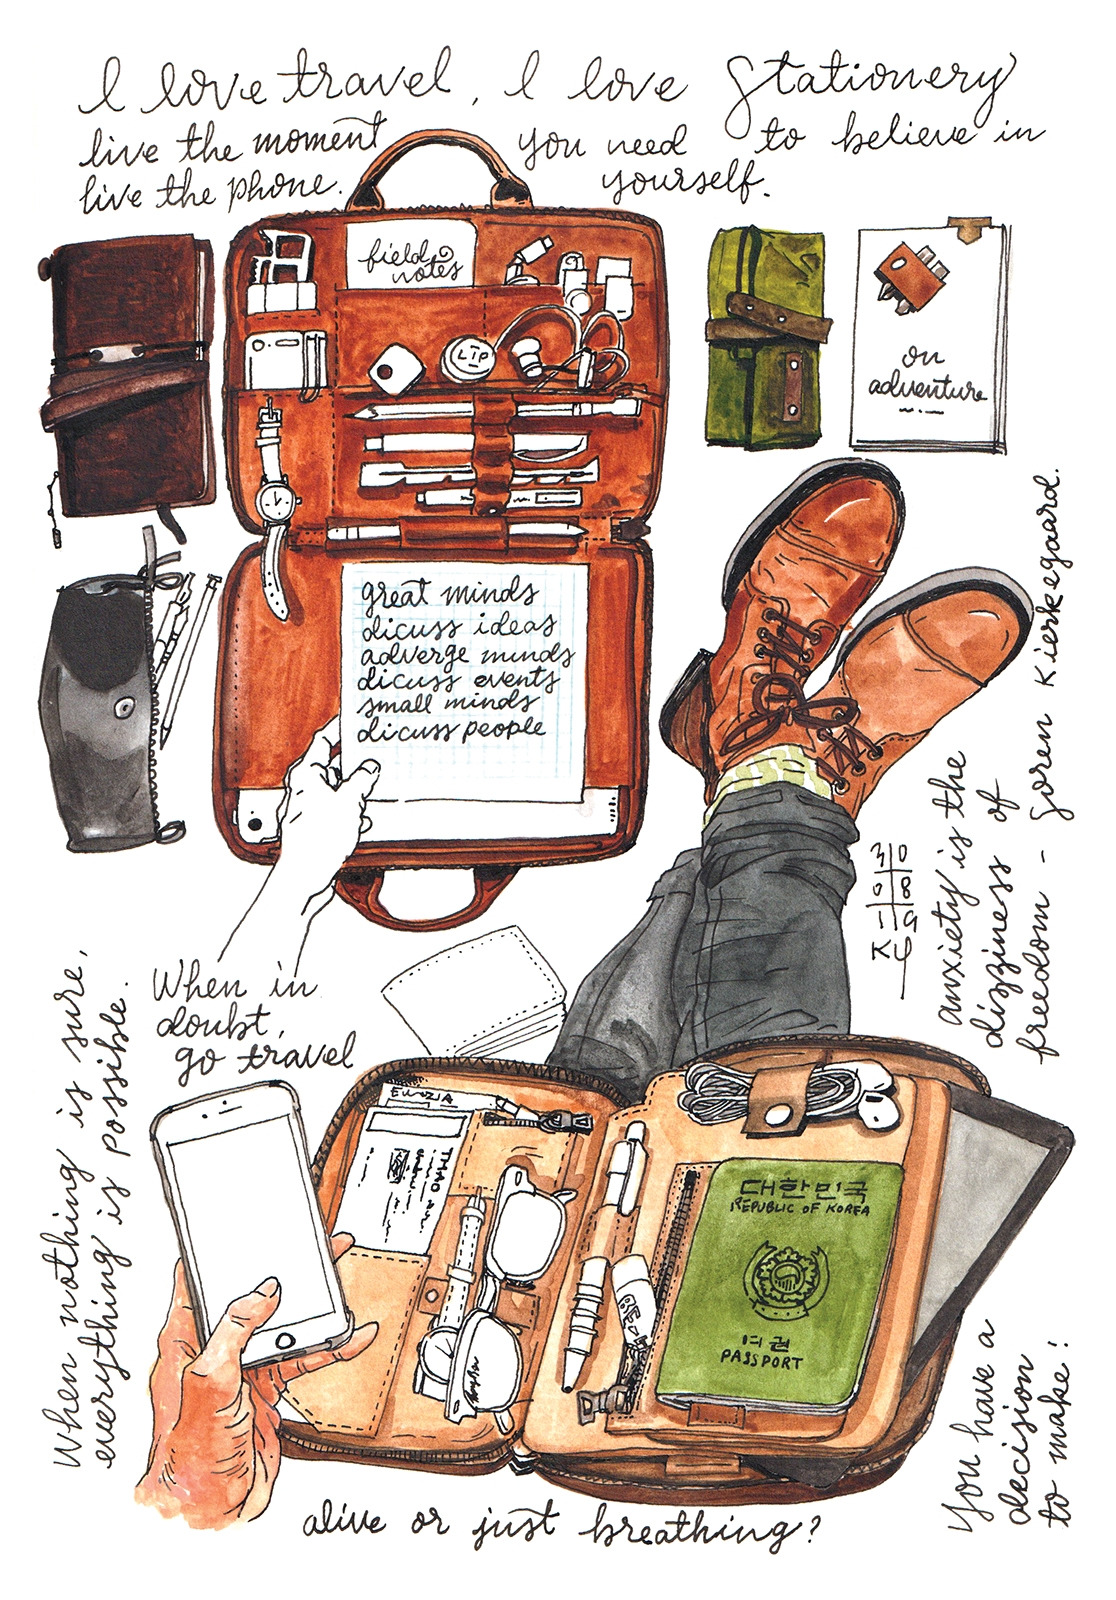 I love travel, I love Stationery
live the moment
live the phone.
you need to believe in
yourself.
field
notes
LTP
on
adventure
great minds
dicuss ideas
adverge minds
dicuss events
small minds
dicuss people
anxiety is the
dizziness of
freedom - Soren Kierkegaard.
30
08
19
When in
doubt,
go travel
When nothing is sure,
everything is possible.
대한민국
REPUBLIC OF KOREA
여권
PASSPORT
You have a
decision
to make!
alive or just breathing?